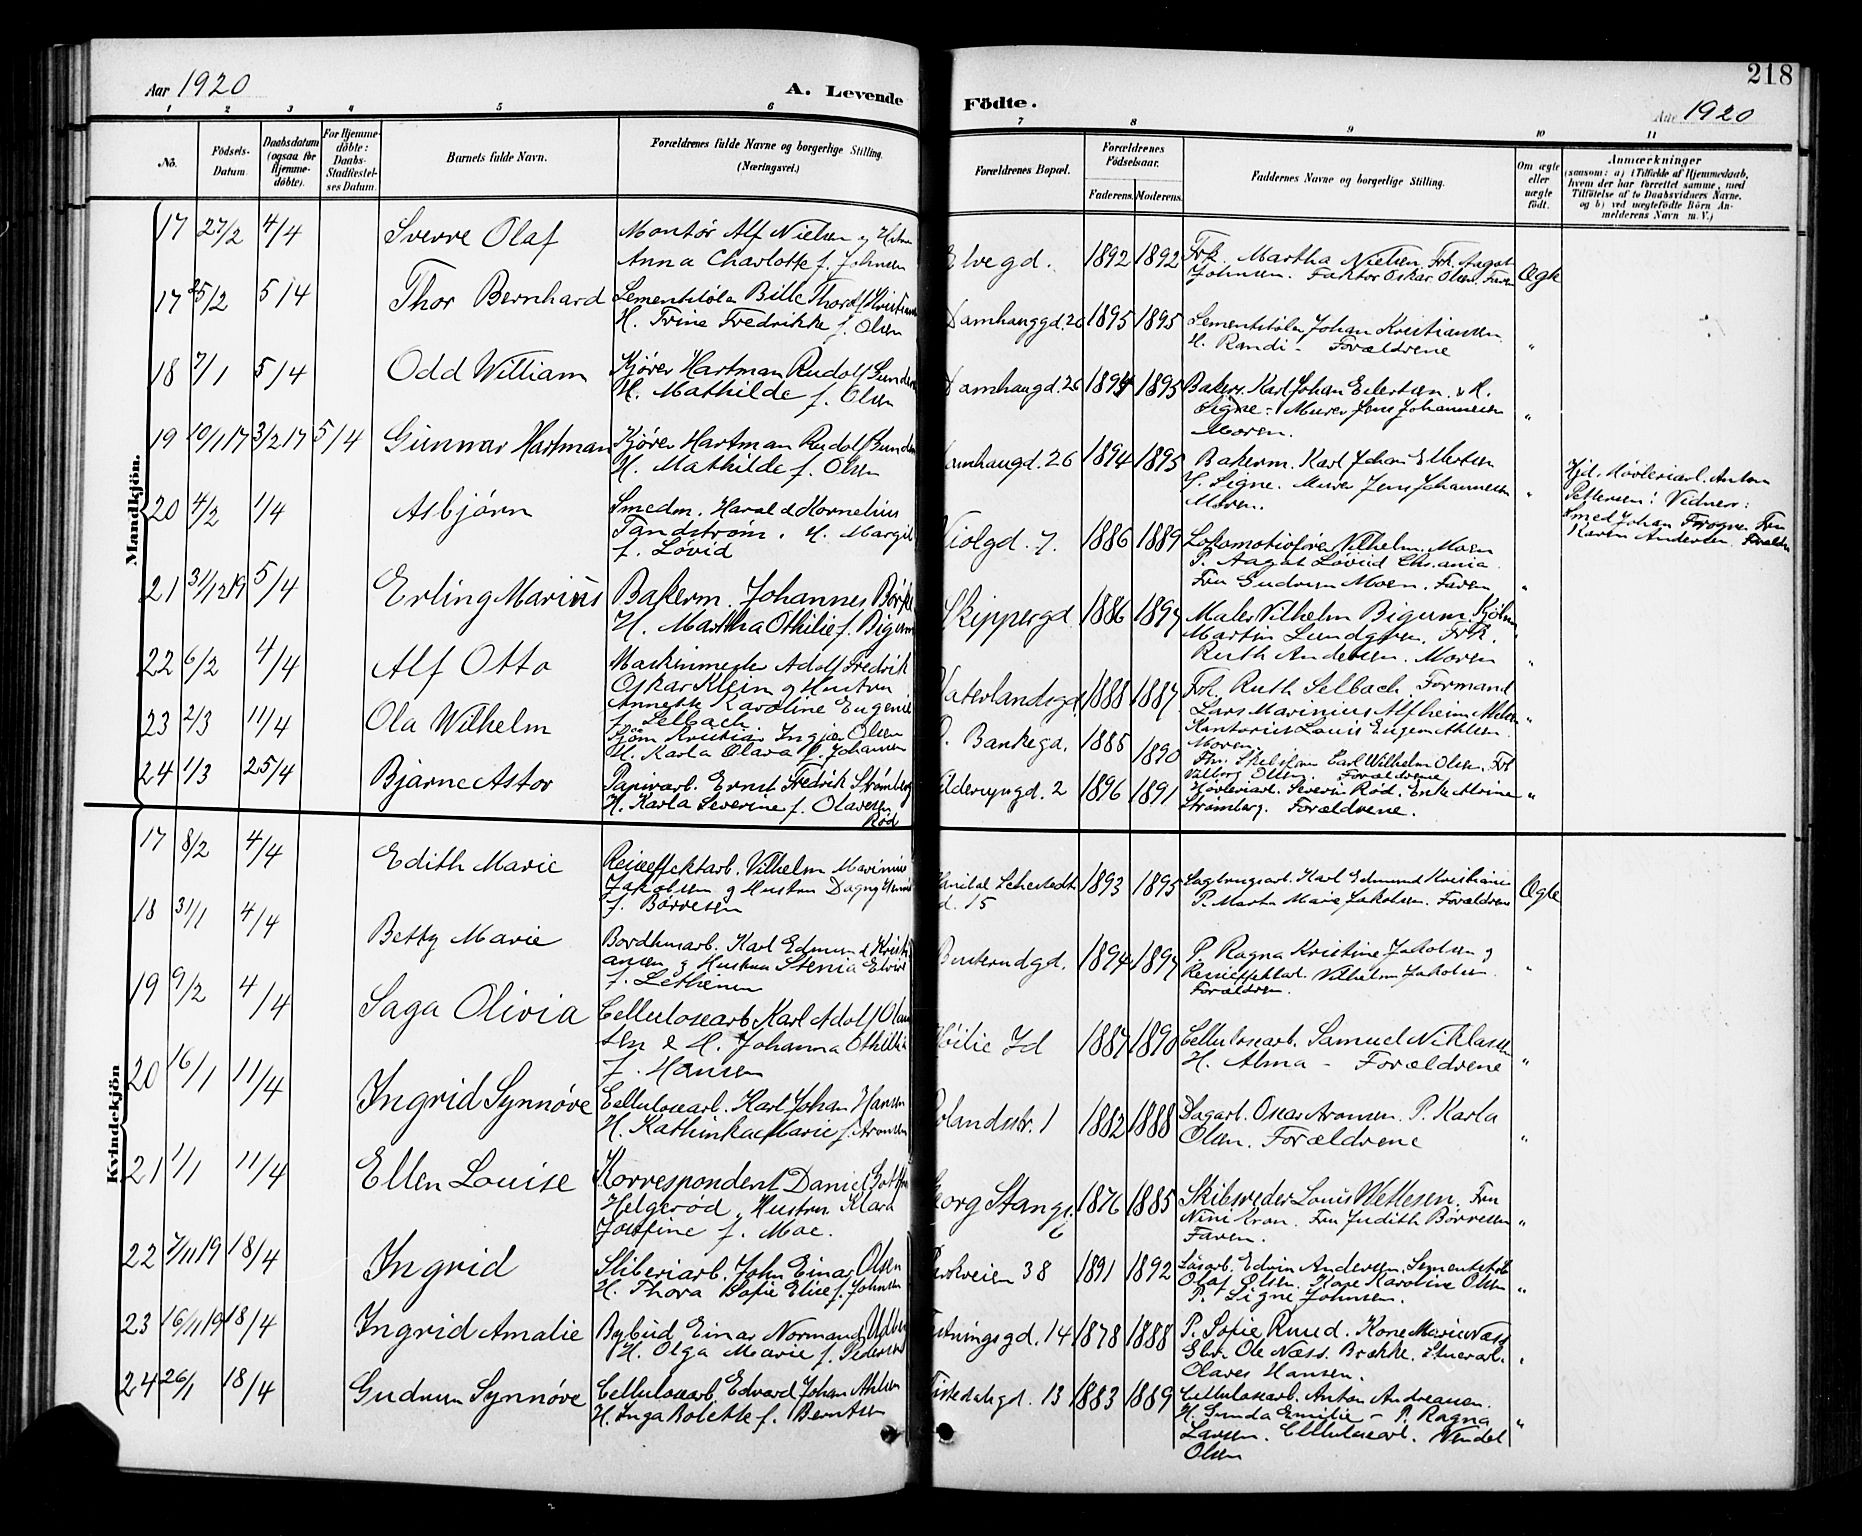 Aar 1920
A. Levende
Födte.
218
Aar 1920
1 2 3 4 5 6 7 8 9 10 11
No.
Födsels-Datum.
Daabsdatum (ogsaa for Hjemmedöbte).
For Hjemmedöbte: Daabs-Stadfæstelses Datum.
Barnets fulde Navn.
Forældrenes fulde Navne og borgerlige Stilling. (Næringsvei.)
Forældrenes Bopæl.
Forældrenes Födselsaar.
Faderens. Moderens.
Faddernes Navne og borgerlige Stilling.
Om ægte eller uægte födt.
Anmærkninger
(saasom: a) i Tilfælde af Hjemmedaab, hvem der har forrettet samme, med Tilföielse af to Daabsvidners Navne, og b) ved uægtefödte Börn Anmelderens Navn m. V.)
Mandkjön.
17 27/2 4/4 Sverre Olaf Montør Alf Nielsen og H.
Anna Charlotte f. Johnsen
Elvegd. 1892 1892 Frk. Martha Nielsen. Frk. Aagot
Johnsen. Faktor Oskar Olsen. Faren Ægte
17 5/2 5/4 Thor Bernhard Sementstøber
H. Trine Fredrikke f. Olsen
Damhauggd. 26 1895 1895 Sementstøber Johan Kristiansen
H. Randi - Forældrene "
18 7/1 5/4 Odd William Kjører Hartman Rudolf
H. Mathilde f. Olsen
Damhaugd. 26 1894 1895 Baker Karl Johan Eilertsen. & H.
Signe - Murer Jens Johannesen
Moren. "
19 10/1 17 3/2 17 5/4 Gunnar Hartman Kjører Hartman Rudolf
H. Mathilde f. Olsen
Damhaugd. 26 1894 1895 Bakerm. Karl Johan
H. Signe. Murer Jens Johannesen
Moren. "
Hjd. Høvleriarb. Anton
Pettersen: Vidner:
Smed Johan Frogner Fru
Karen Andersen.
20 4/2 1/4 Asbjørn Smedm. Harald Kornelius
Tandstrøm. H. Margit
f. Løvid
Violgd. 7. 1886 1889 Lokomotivfører Vilhelm Moen
P. Aagot Løvid Chr.ania
Fru Gudrun Moen. Faren "
21 31/12 19 5/4 Erling Marius Bakerm. Johannes
H. Martha Othilie f. Bigum
Skippergd. 1886 1897 Maler Vilhelm Bigum.
Martin Lundgren. Frk.
Ruth Andersen. Moren "
22 6/2 4/4 Alf Otto Adolf Fredrik
Oskar Klein og Hustru
Annette Karoline Eugenie
f. Selbach
Vaterlandsgd. 1888 1887 Frk. Ruth Selbach. Formand
Lars Marinius Alfheim
Kontorist Louis Eugen Ahlsen
Moren. "
23 2/3 11/4 Ola Wilhelm Sjøm Kristian Ingjar Olsen
H. Karla Olava f. Johansen
Bankegd. 1885 1890 Earl Wilhelm Olsen. Frk
Valborg Olsen. Forældrene
24 1/3 25/4 Bjarne Astor Papirarb. Ernst Fredrik Strømberg
H. Karla Severine f. Olavesen
Rød
2 1896 1891 Høvleriarb. Severin Rød. Enke Alvine "
Strømberg. Forældrene.
Kvindekjön
17 8/2 4/4 Edith Marie Vilhelm Marinius
Jakobsen og Hustru Dagny
f. Børresen
Sehestedts
gd. 15 1893 1895 Karl Edmund Kristiansen
P. Martha Marie Jakobsen. Forældrene Ægte
18 31/1 4/4 Betty Marie Karl Edmund Kristi
ansen og Hustru Stenia
f. Lethenen
1894 1897 P. Ragna Kristine Jakobsen og
Vilhelm Jakobsen
Forældren. "
19 9/2 4/4 Saga Olivia Cellulosearb. Karl Adolf
sen & H. Johanna Othilie
f. Hansen
Høilie Id 1887 1890 Cellulosearb. Samuel Niklassen
H. Alma - Forældrene "
20 16/1 11/4 Ingrid Synnøve Cellulosearb. Karl Johan Hansen
H. Kathinka Marie f. Aronsen
1 1882 1888 Dagarb. Oscar Aronsen. P. Karla
Olsen. Forældrene "
21 1/1 11/4 Ellen Louise Korrespondent Daniel
Helgerød, Hustru Klara
Josefine f. Moe.
Georg Stangs 6 1876 1885 Skibsreder Louis Wettesen. Fru
Nini Fru Judith Børresen
Faren. "
22 7/11 19 18/4 Ingrid Sliberiarb. John Einar Olsen
H. Thora Sofie Elise f. Johnsen
38 1891 1892 Edvin Andersen. Sementstøb
Olaf Olsen. Kone Karoline Olsen
P. Signe Johnsen. "
23 16/11 19 18/4 Ingrid Amalie Bybud Einar Norman
H. Olga Marie f. Pedersen
Festningsgd. 14 1878 1888 P. Sofie Ruud. Kone Marie Næss
Gbr. Ole Næss. Brække.
Olaves Hansen. "
24 26/1 18/4 Gudrun Synnøve Cellulosearb Edvard Johan Ahlsen
H. Inga Bolette f. Berntsen
Tistedalsgd. 13 1883 1889 Cellulosearb. Anton Andreasen.
H. Gunda Emilie - P. Ragna
Larsen. Cellulosearb. Vendel
Olsen "